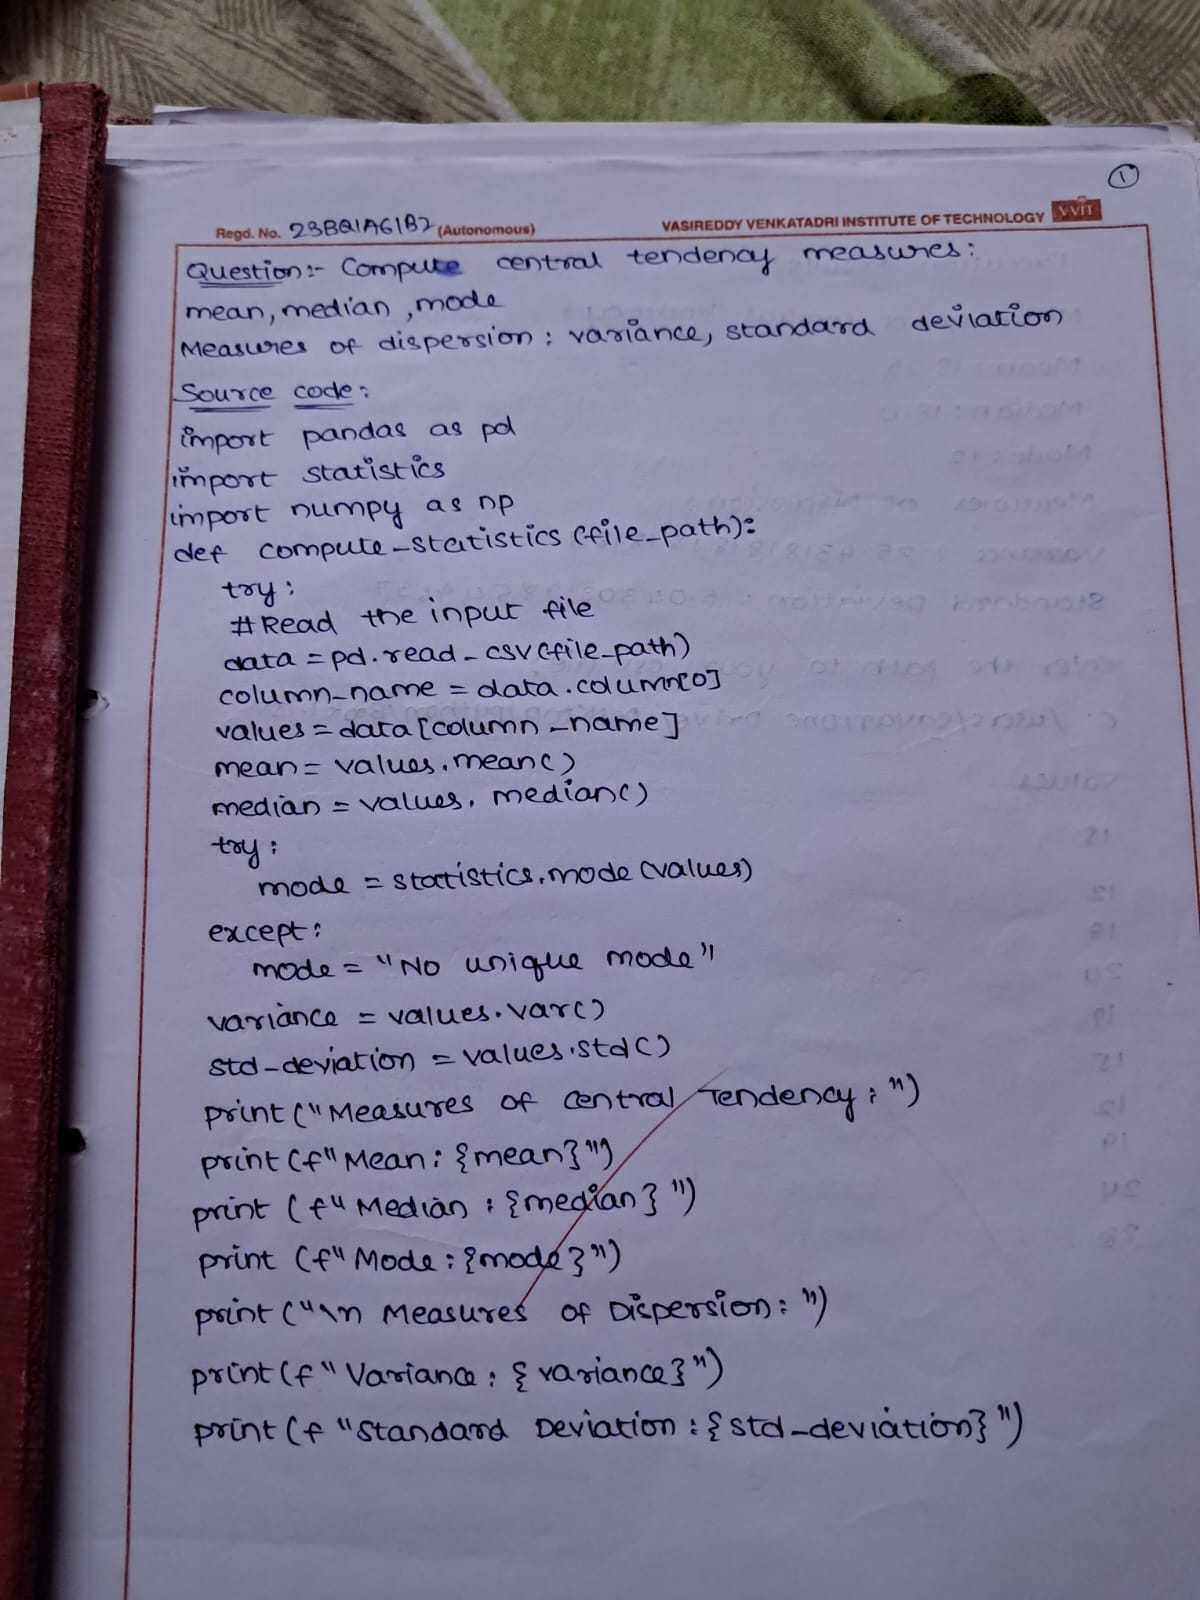 1
Regd. No. 23BQ1A61B2 (Autonomous) VASIREDDY VENKATADRI INSTITUTE OF TECHNOLOGY VVIT
Question:- Compute central tendency measures:
mean, median, mode
Measures of dispersion: variance, standard deviation
Source code:
import pandas as pd
import statistics
import numpy as np
def compute_statistics (file_path):
try:
# Read the input file
data = pd.read_csv(file_path)
column_name = data.column[0]
values = data [column_name]
mean = values.mean()
median = values.median()
try:
mode = statistics.mode (values)
except:
mode = "No unique mode"
variance = values.var()
std_deviation = values.std()
print ("Measures of central Tendency:")
print (f"Mean: {mean}")
print (f"Median: {median}")
print (f"Mode: {mode}")
print ("\n Measures of Dispersion:")
print (f"Variance: {variance}")
print (f"Standard Deviation: {std_deviation}")